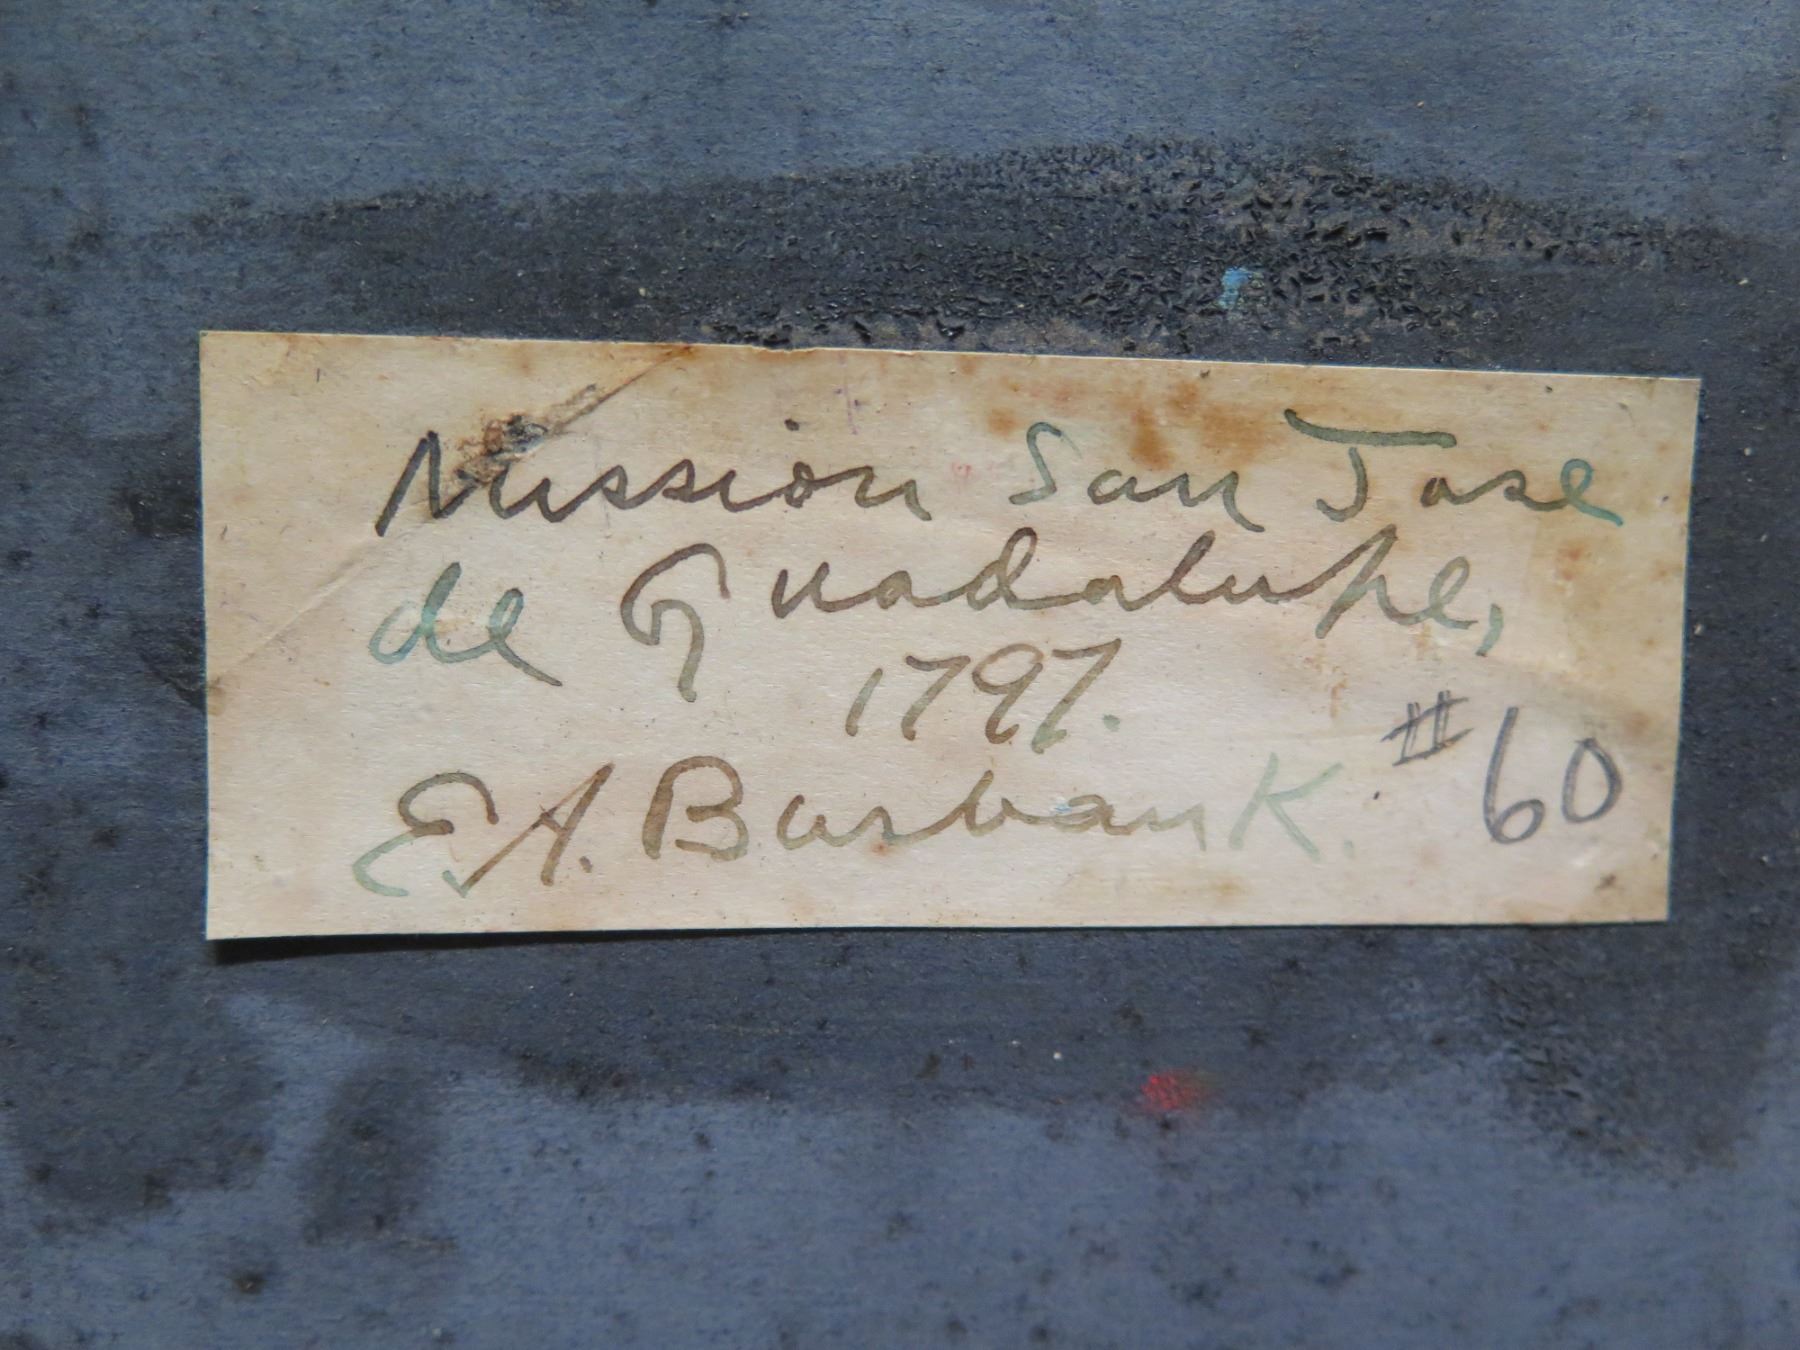 Mission San Jose
de Guadalupe,
1797.
E.A. Burbank. #60